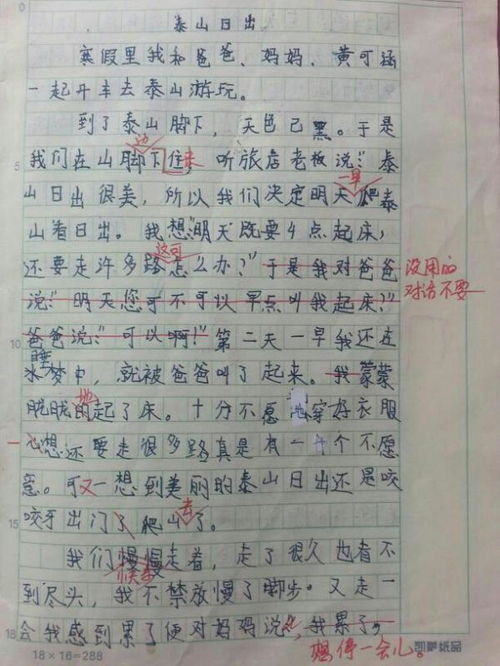 泰山日出
寒假里我和爸爸、妈妈、黄可涵
一起开车去泰山游玩。
到了泰山脚下,天色已黑。于是
边
我们在山脚下住来,听旅店老板说:"泰
一早
山日出很美,所以我们决定明天爬泰
山看日出。我想:"明天既要4点起床,
这可
还要走许多路怎么办?"于是我对爸爸
没用的
对话不要
说:"明天您可不可以早点叫我起床?"
爸爸说:"可以啊!"第二天一早我还在
睡
水梦中,就被爸爸叫了起来。我蒙蒙
地
胧胧的起了床。十分不愿 穿好衣服
心想还要走很多路真是有一千个不愿
意。可又一想到美丽的泰山日出还是咬
去
咬牙出门了爬山了。
我们慢慢走着,走了很久也看不
到尽头,我不禁放慢了脚步。又走一
会我感到累了便对妈妈说:"我累了,
想停一会儿。
5
10
15
18
18×16=288
凯萨纸品